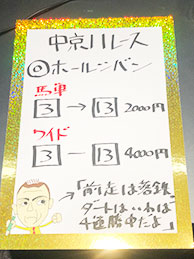 中京11レース
◎ホールシバン
馬単
3→13 2000円
ワイド
3－13 4000円
→「前走は落鉄
ダートはいわば
4連勝中だよ」